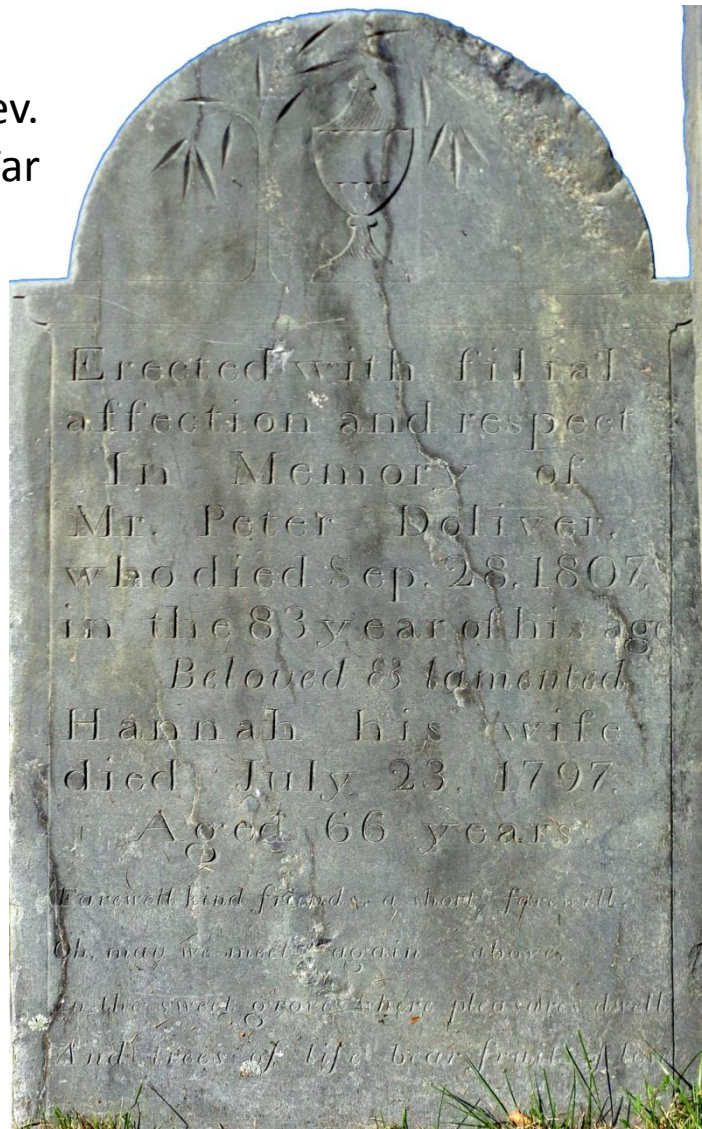 ev.
ar
Erected with filial
affection and respect
In Memory of
Mr. Peter Doliver,
who died Sep. 28, 1807,
in the 83 year of his age
Beloved & lamented
Hannah his wife
died July 23, 1797,
Aged 66 years.
Farewell kind friends, a short farewell,
Oh, may we meet again above,
in the sweet groves where pleasures dwell
And trees of life bear fruits of lov